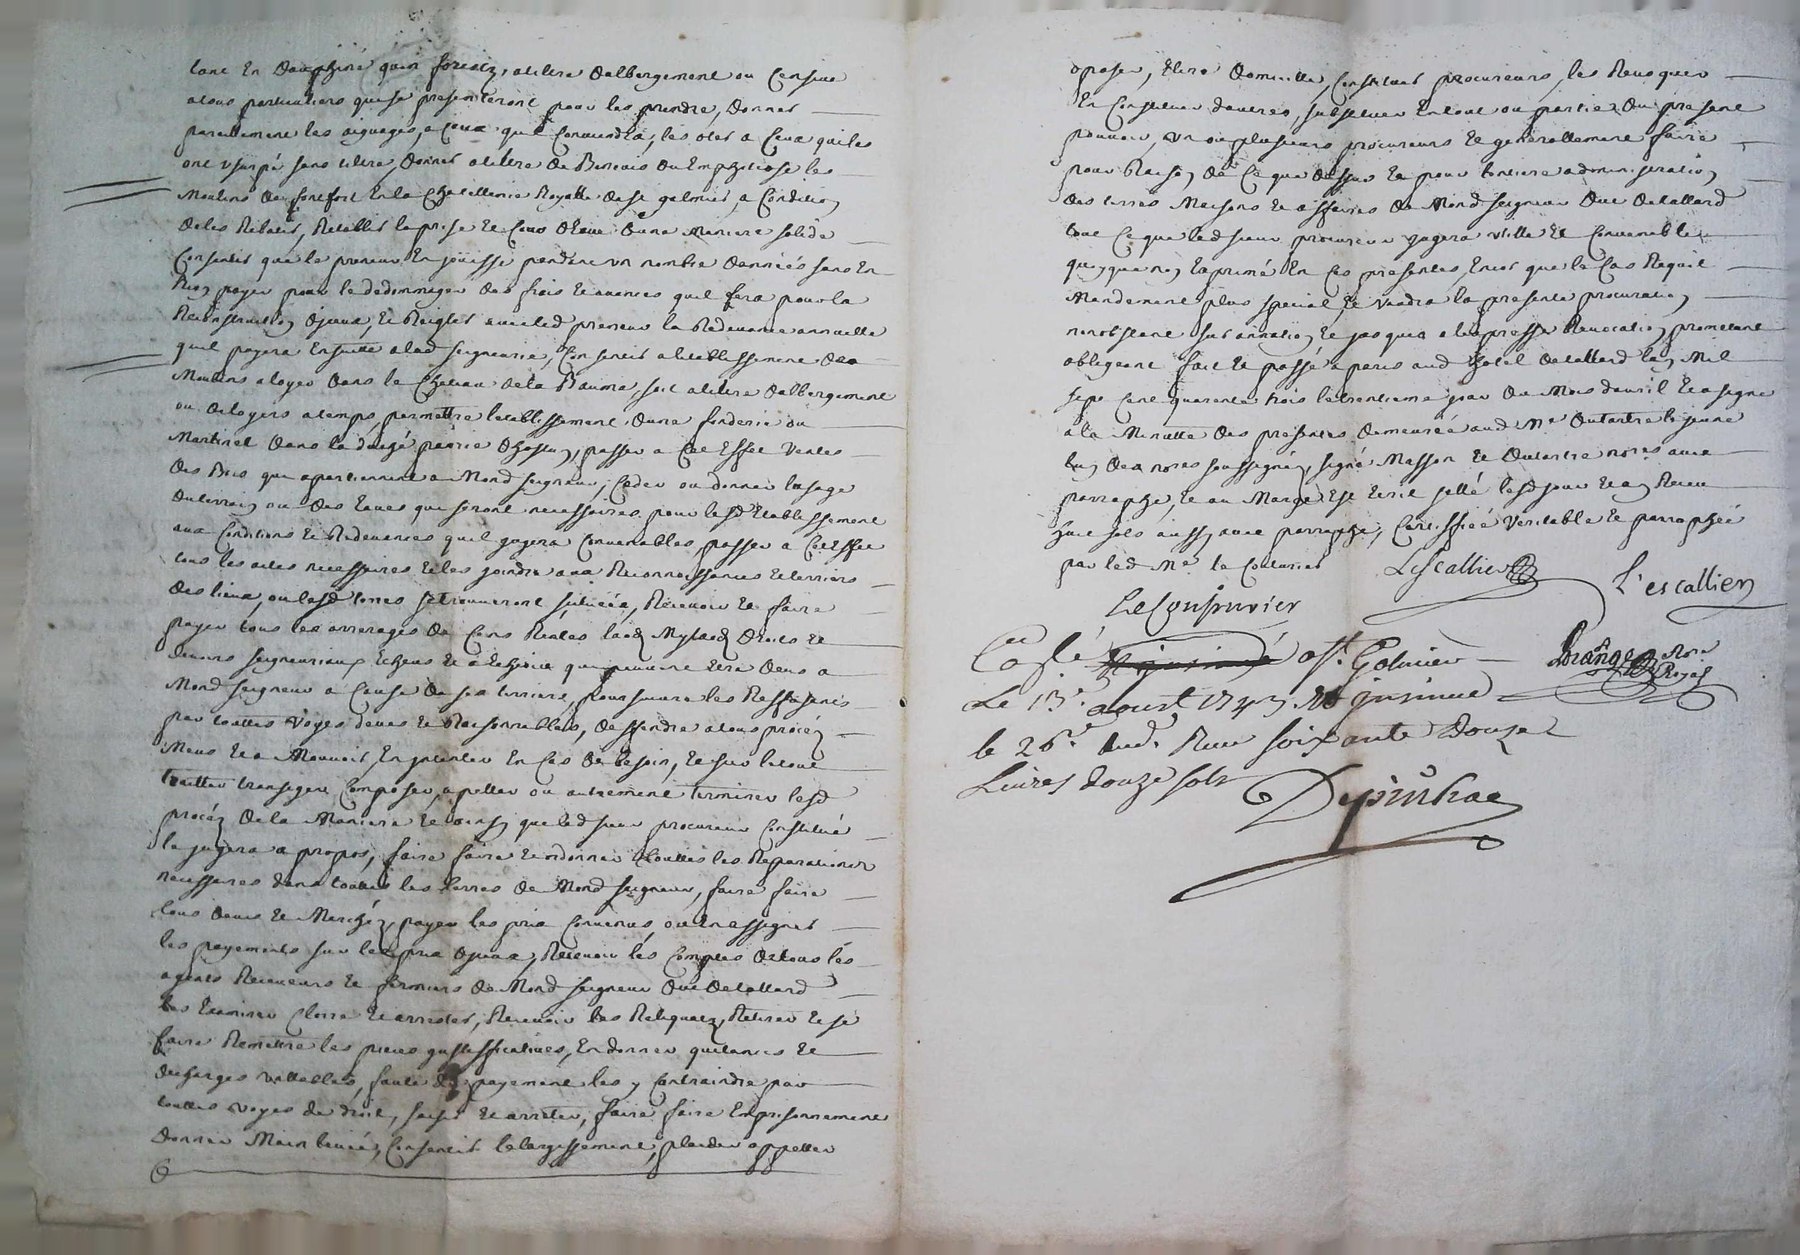 tant En dauphiné quen forestz, atiltre dalbergement ou Censive
atous particuliers quise presenteront pour les prendre, donner
pareillement les aiguages, a Ceux quil Conviendra, les oter a Ceux quiles
ont usurpé sans tiltre, donner atiltre de Benevis ou Emphiteose les
Moulins de fontfort En la Chatellenie Royalle de st galmier, a Condition
de les Rebatir, Retablir la prise et Cours deau dune Maniere solide
Consentir que le preneur En joüisse pendant un nombre dannées sans En
Rien payer pour le dedommager des frais et avances quil fera pour la
Reconstruction dyceux, et Reigler avecled preneur la Redevance annuelle
quil payera Ensuitte alad seigneurie, Consentir aletablissement des
Moulins aloyer dans le Chateau de la Baume, soit atiltre dalbergement
ou de loyers atemps, permettre letablissement dune fonderie ou
Martinet dans la duché pairie dhostun, passer a Cet Effet Ventes
des Bois qui apartiennent a Mond seigneur, Ceder ou donner lusage
duterrain ou des Eaues qui seront necessaires pour lesd Etablissement
aux Conditions et Redevances quil jugera Convenables, passer a Cet Effet
tous les actes necessaires et les joindre aux Reconnoissances et terriers
des lieux, ou lesd terres se trouveront scituées, Recevoir et faire
payer tous les arrerages de Cens Rentes Laods Mylaods droits et
devoirs seigneuriaux Echeus et a Echeoir qui peuvent Etre deus a
Mond seigneur a Cause de ses terriers, poursuivre les Reffusents
par touttes Voyes deues et Raisonnables, deffendre atous procéz
Meus et a Mouvoir, En jntenter En Cas de besoin, et sur letout
traitter transiger Composer, apeller ou autrement terminer lesd
procéz de la Maniere et ainsy que led sieur procureur Constitué
le jugera a propos, faire faire et ordonner touttes les Reparations
necessaires dans touttes les terres de Mond seigneur, faire faire
tous devis et Marchéz, payer les prix Convenus, ou En assigner
les payements sur les prix dyceux, Recevoir les Comptes detous les
agents Receveurs et fermiers de Mond seigneur Duc detallard
les Examiner Clorre et arrester, Recevoir les Reliquatz, Retirer et se
faire Remettre les pieces justifficatives, En donner quitances et
decharges vallables, faute de payement les y Contraindre par
touttes voyes de droit, saisir et arreter, faire faire Emprisonnement
donner Main levée, Consentir lelargissement, plaider appeller
oposer, Elire domicille, Constituer procureurs, les Revoquer
En Constituer dautres, substituer Entout ou parties du present
pouvoir, un ou plusieurs procureurs et generallement faire
pour Raison de Ce que dessus et pour lentiere administration
des terres Maisons et affaires de Mond seigneur Duc detallard
tout Ce que led sieur procureur jugera utille et Convenable
quoyque non Exprimé En Ces presentes, Encor que le Cas Requit
Mandement plus special, et vaudra la presente procuration
nonobstant surannation et jusqua alexpresse Revocation promettant
obligeant fait et passé a paris aud hotel detallard lan Mil
sept Cent quarante trois letrentieme jour du Mois davril et a signé
a la Minutte des presentes demeurée aud Me Dutartre le jeune
lun des nores soussignéz, signé Masson et Dutartre nores avec
parraphe, et au Marge Est Ecrit sellé lesd jour et an Receu
huit sols aussy avec parraphe, Certiffiée Veritable et parraphée
par led Me le Couturier Lescallier L'escallier
LeCouturier
Colle st Galmier Drange Nore Royal
Le 13e aoust 1743. et jnsinué
le 26e dud. Receu soixante Douze
Livres douze sols Depinhac